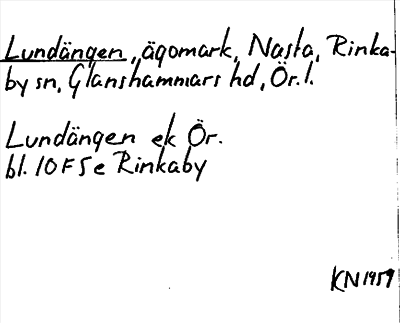 Lundängen, ägomark, Nasta, Rinka-
by sn, Glanshammars hd, Ör. l.
Lundängen ek Ör.
bl. 10 F 5 e Rinkaby
KN 1959